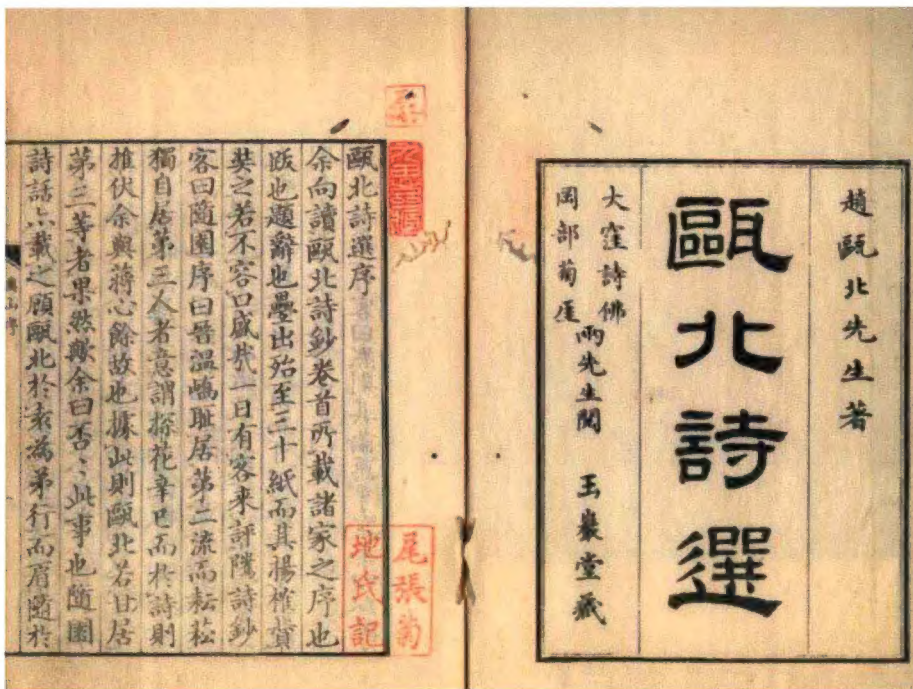 趙甌北先生著
甌北詩選
大窪詩佛
岡部菊厓
兩先生閱 玉巖堂藏
甌北詩選序
余向讀甌北詩鈔卷首所載諸家之序也
跋也題辭也壘出殆至三十紙而其揚榷賞
奬之若不容口盛哉一日有客来評隲詩鈔
客曰隨園序曰晉温嶠耻居第二流而耘菘
獨自居第三人者意謂探花辛巳而於詩則
推伏余與蔣心餘故也據此則甌北若甘居
第三等者果然歟余曰否〻此事也隨園
詩話亦載之顧甌北於袁為弟行而眉隨於
尾張菊
地氏記